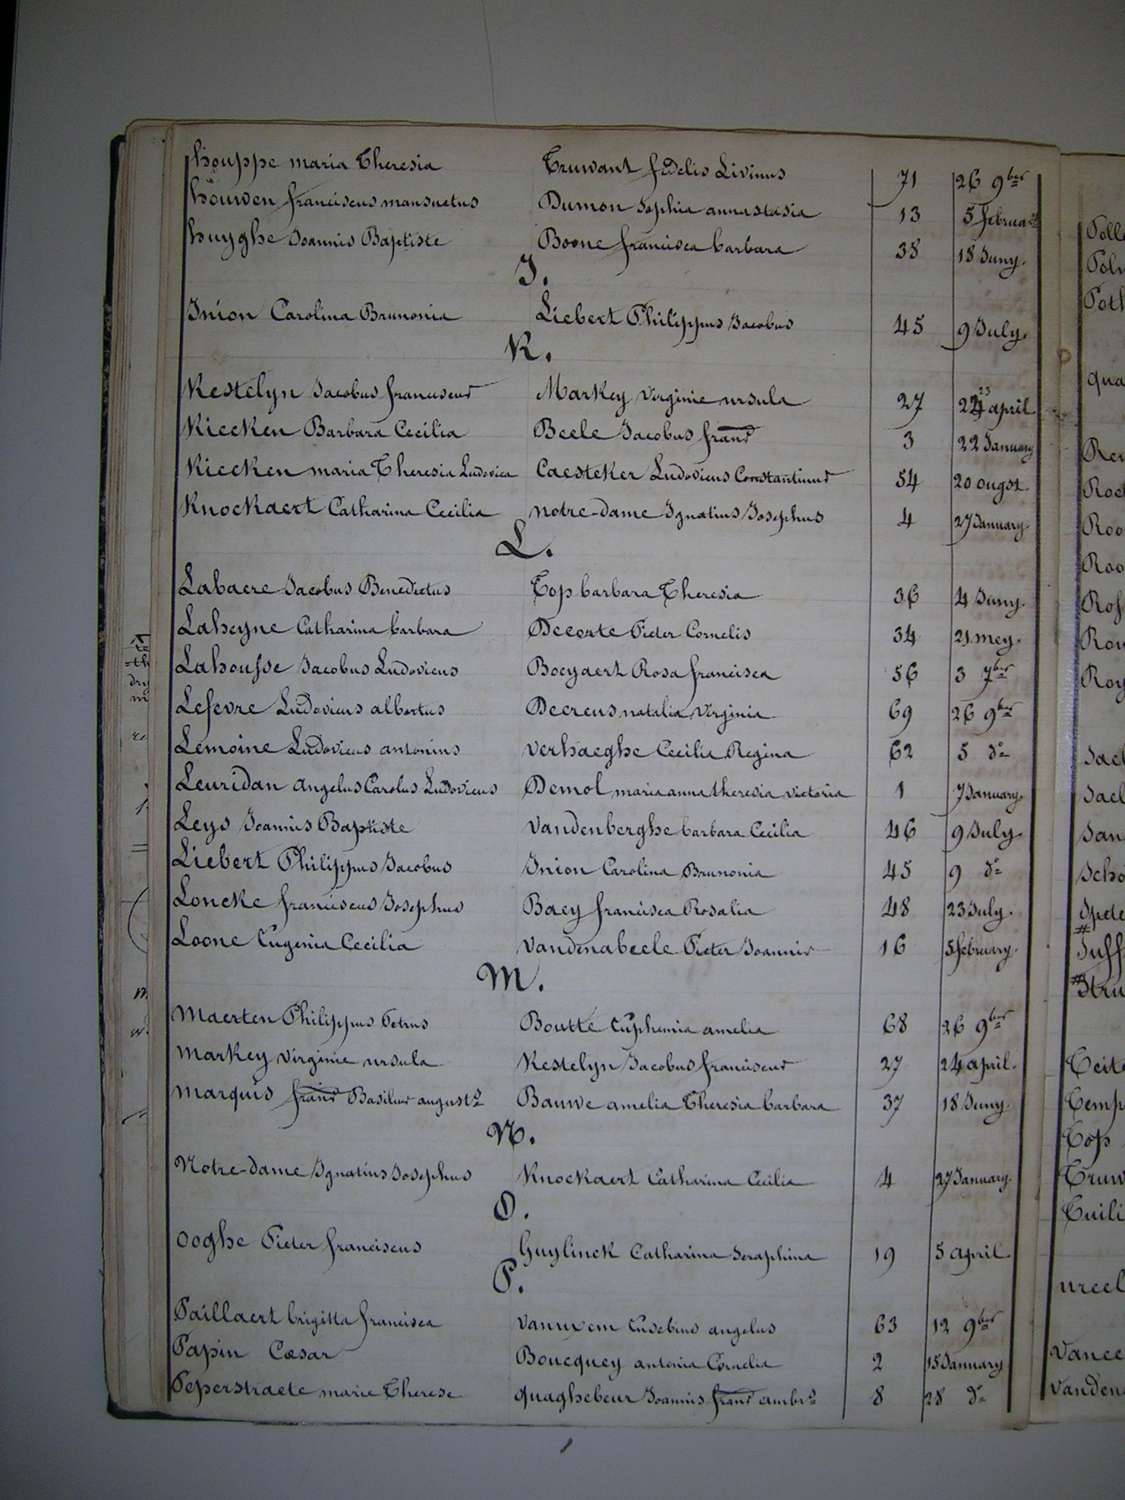 houppe maria Theresia Truwant fidelis Livinus 71 26 9ber
houwen franciscus mansuetus Dumon Sophia annastasia 13 5 februa
huyghe Joannis Baptiste Boone francisca barbara 38 18 Juny.
J.
Jnion Carolina Brunonia Liebert Philippus Jacobus 45 9 July.
K.
Kestelyn Jacobus franciscus Markey Virginie ursula 27 24 april
Kiecken Barbara Cecilia Beele Jacobus frans 3 22 January
Kiecken maria Theresia Ludovica Caesteker Ludovicus Constantinus 54 20 ougst
Knockaert Catharina Cecilia notre-dame Ignatius Josephus 4 27 January.
L.
Labaere Jacobus Benedictus Top barbara Theresia 36 4 Juny.
Laheyne Catharina barbara Decorte Pieter Cornelis 34 21 mey.
Lahousse Jacobus Ludovicus Boeyaert Rosa francisca 56 3 7ber
Lefevre Ludovicus albertus Decreus natalia Virginia 69 26 9ber
Lemoine Ludovicus antonius Verhaeghe Cecilia Regina 62 5 do
Leuridan angelus Carolus Ludovicus Demol maria anna theresia victoria 1 7 January.
Leys Joannis Baptiste Vandenberghe barbara Cecilia 46 9 July.
Liebert Philippus Jacobus Jnion Carolina Brunonia 45 9 do
Loncke franciscus Josephus Baey francisca Rosalia 48 23 July.
Loone Eugenia Cecilia Vandenabeele Pieter Joannis 16 5 february.
M.
Maerten Philippus Petrus Boutte Euphemia amelia 68 26 9ber
Markey Virginie ursula Kestelyn Jacobus franciscus 27 24 april.
Marquis frans Basilius augusto Bauwe amelia Theresia barbara 37 18 Juny.
N.
Notre-dame Ignatius Josephus Knockaert Catharina Cecilia 4 27 January.
O.
Ooghe Pieter franciscus Guylinck Catharina Seraphina 19 5 april.
P.
Paillaert brigitta francisca Vanuxem Eusebius angelus 63 12 9ber
Papin Cæsar Boucquey antonia Cornelia 2 15 January
Peperstraete marie Therese quaghebeur Joannis frans ambro 8 28 do